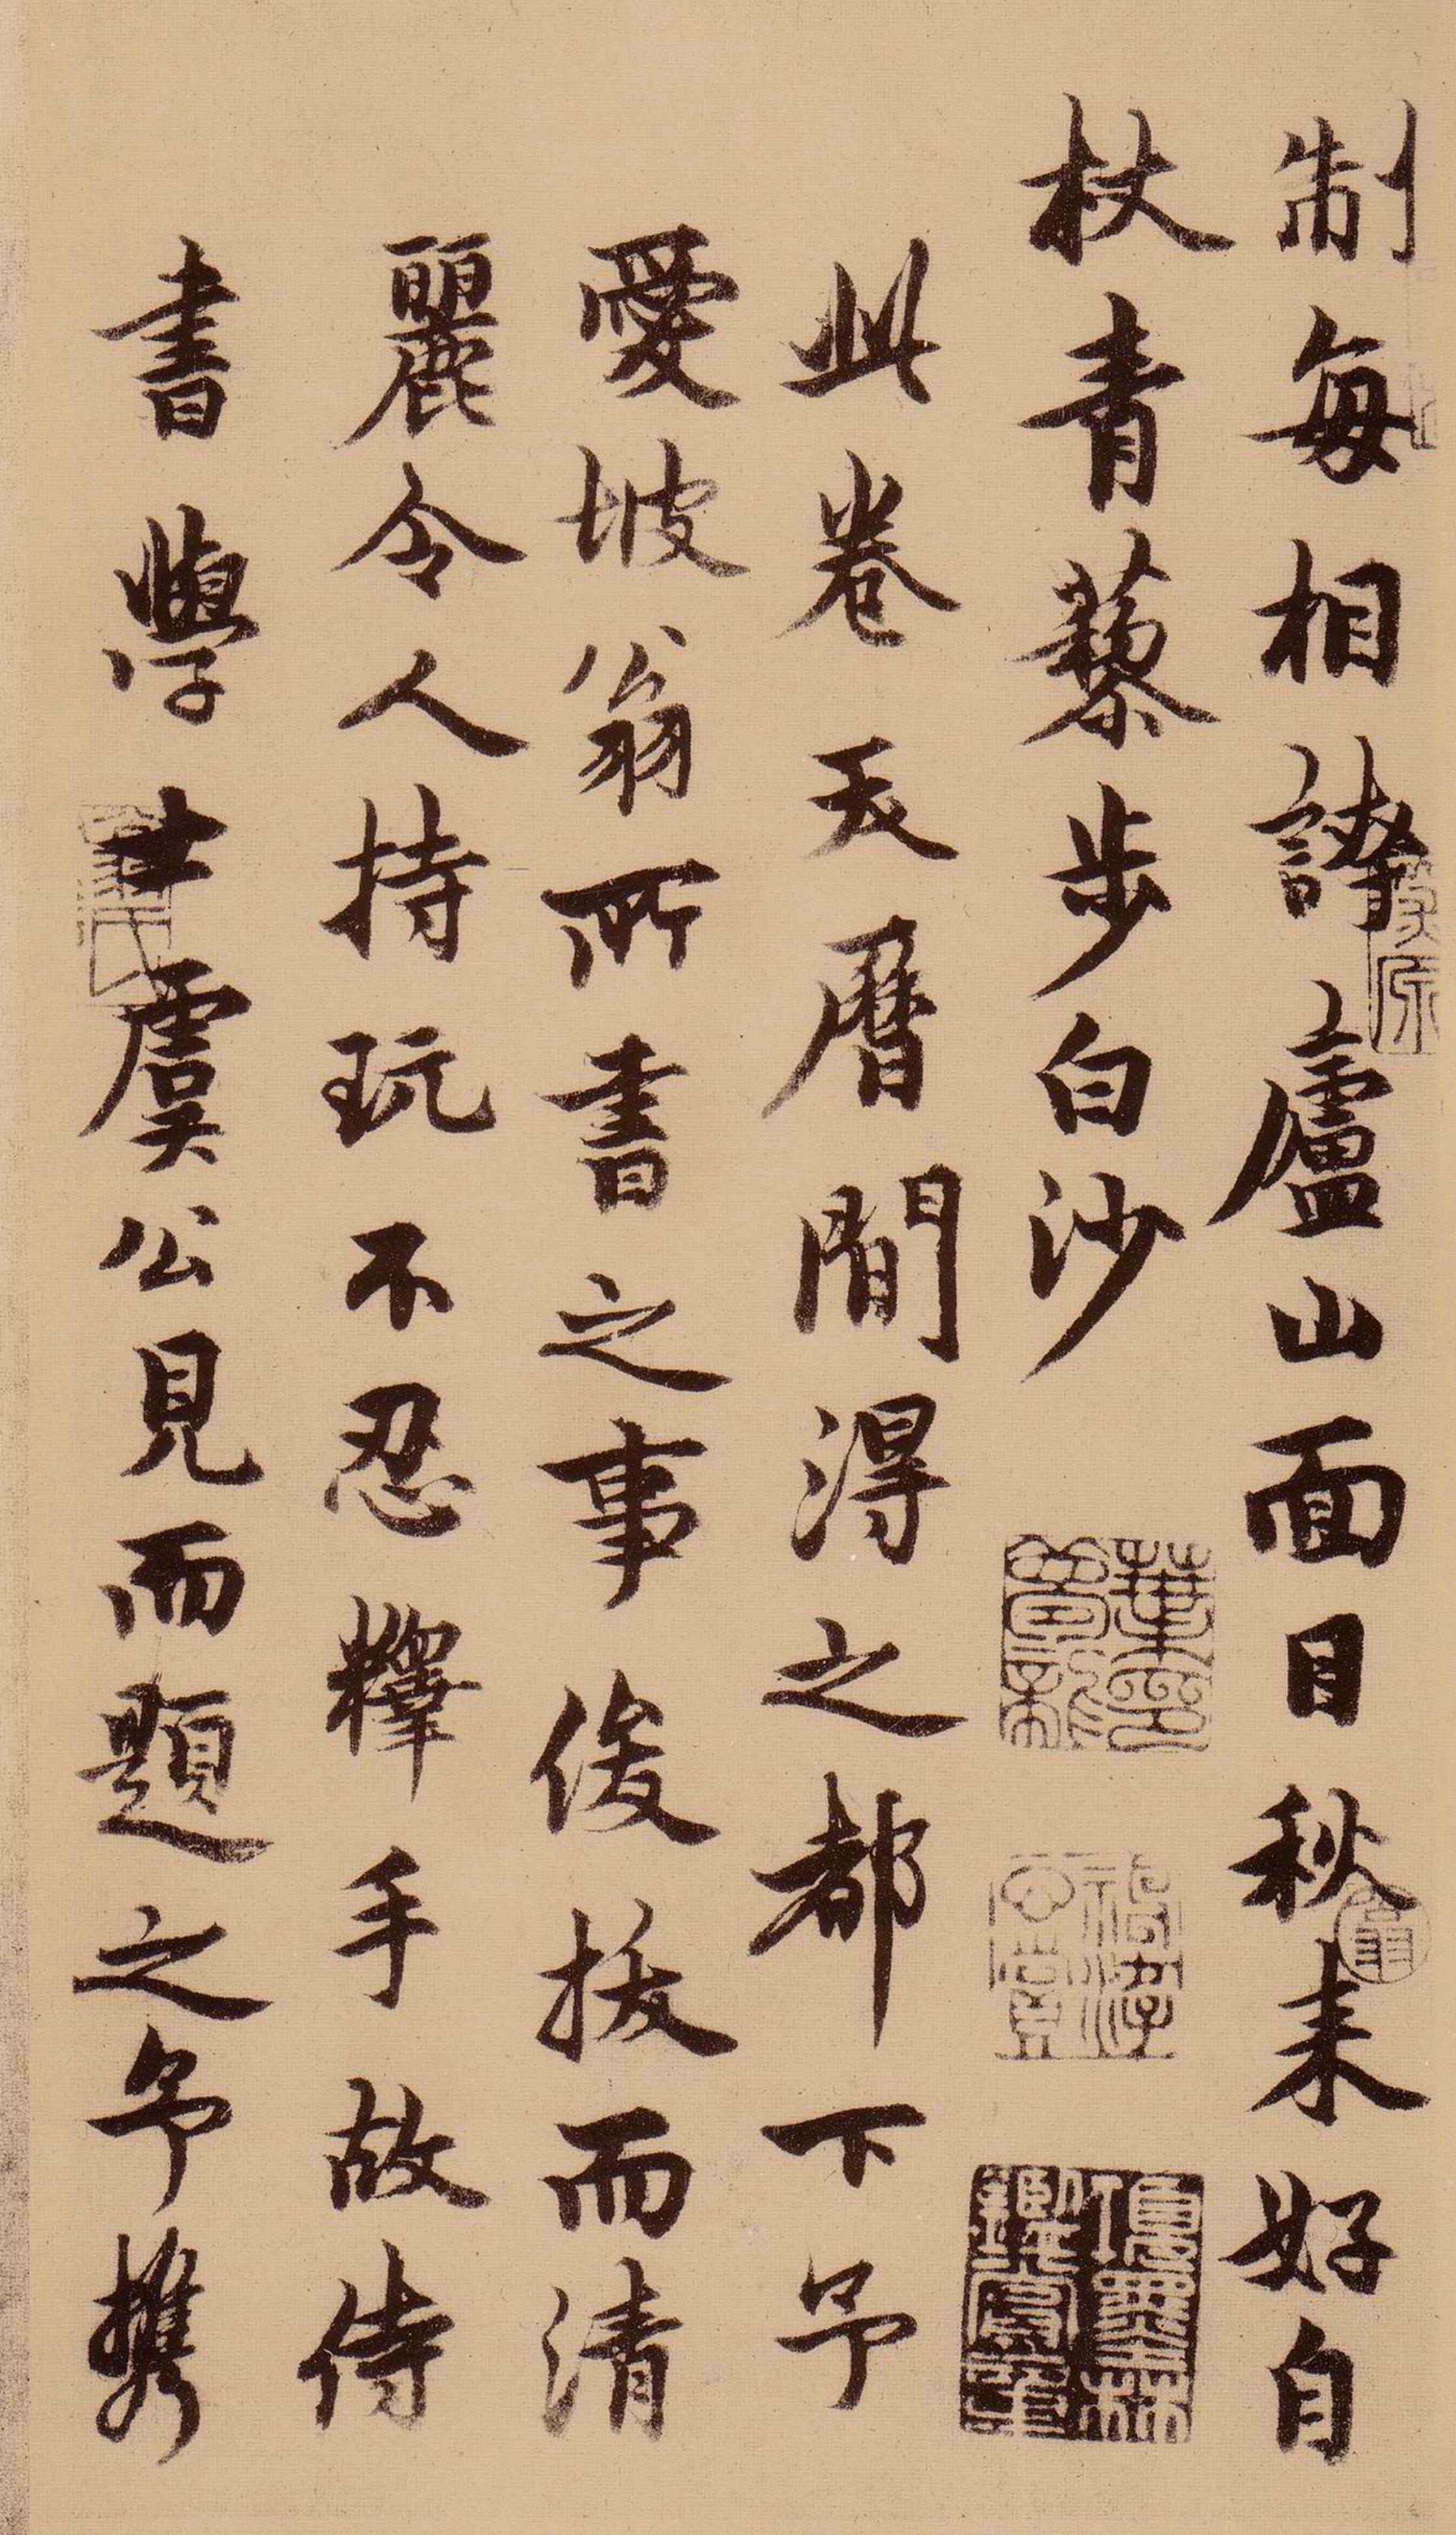 制每相誇廬山面目秋来好自
杖青藜步白沙
此卷天曆間得之都下予
愛坡翁所書之事俊拔而清
麗令人持玩不忍釋手故侍
書學士虞公見而題之予攜